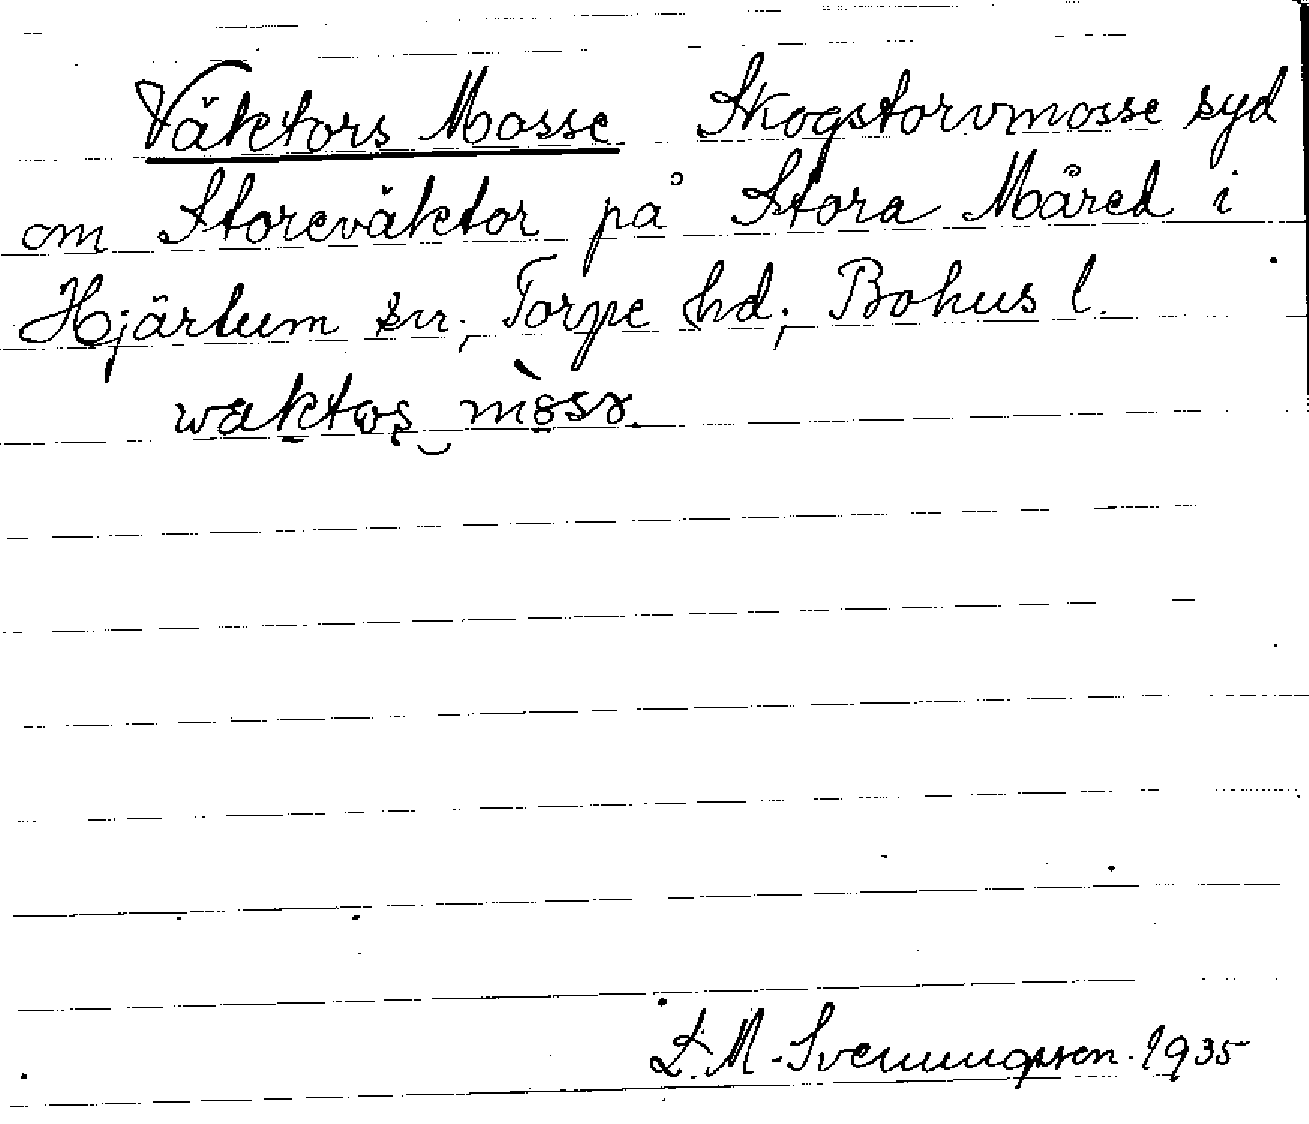 Väktors Mosse Skogstorvmosse syd
om Storeväktor på Stora Måred i
Hjärtum sn; Torpe hd; Bohus l.
waktos mòsɤ.
L. M. Svenungsson. 1935